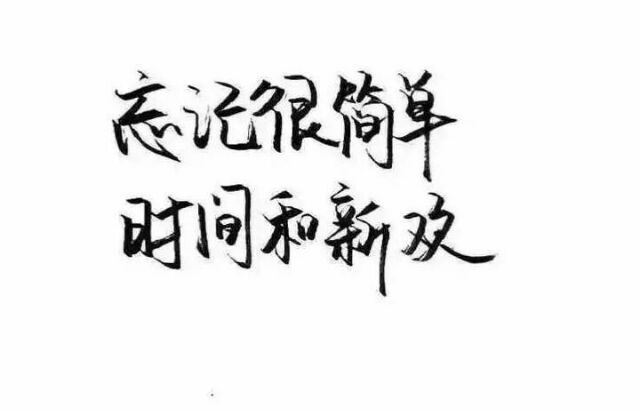 忘记很简单
时间和新欢